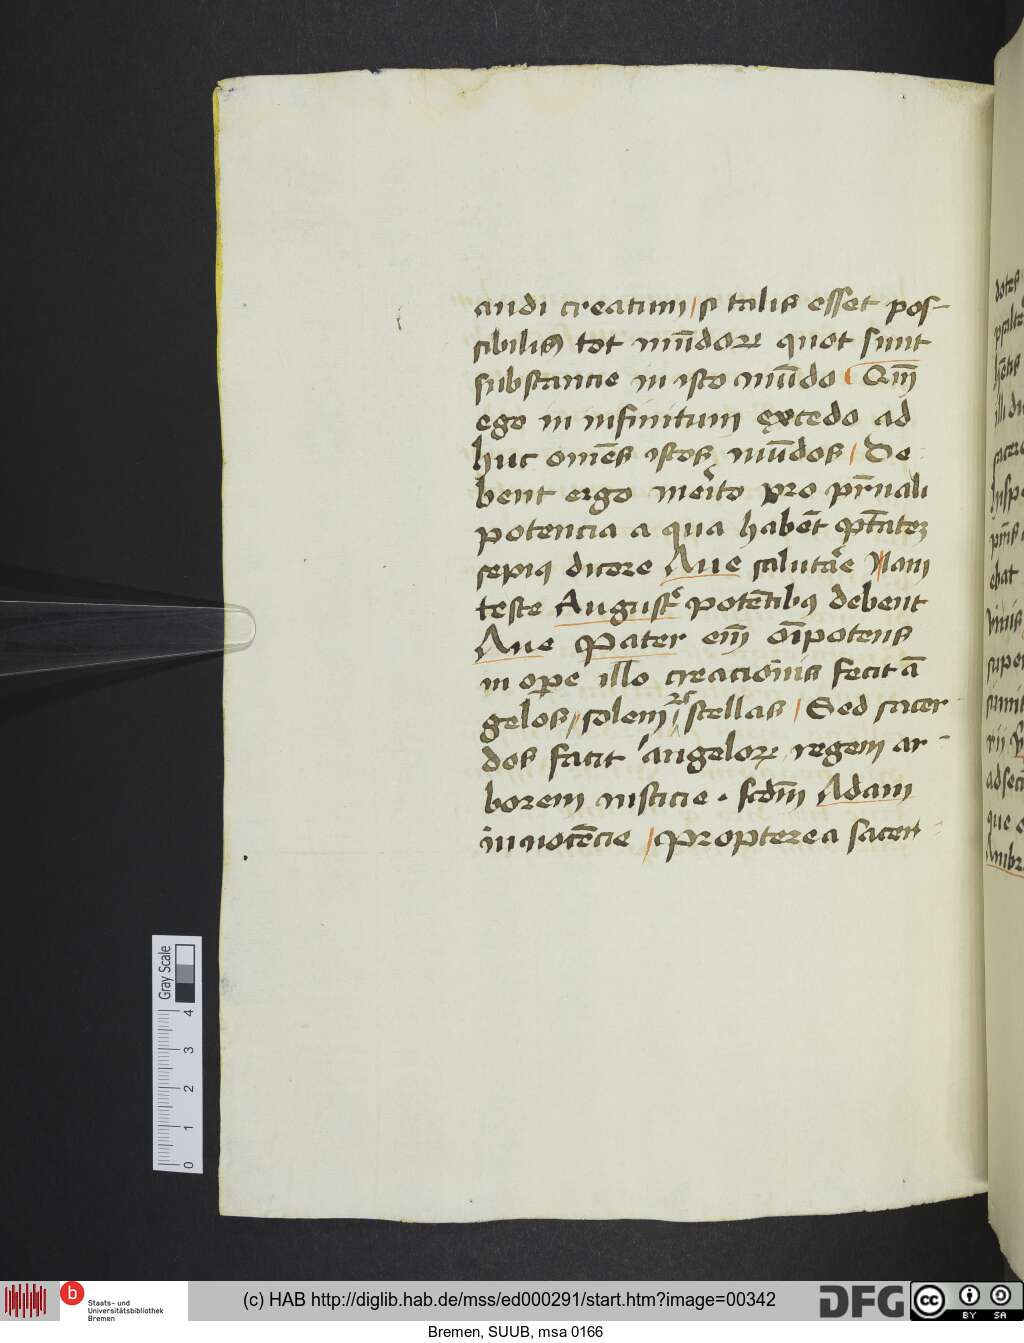 andi creatum / si talis esset pos-
sibilis tot mūdoꝝ quot sunt
substancie in isto mūdo ( Qm̄
ego in infinitum excedo ad
huc om̄es istos mūdos / De
bent ergo merito pro
potencia a qua habēt p̄tatez
dicere Aue salutare Nam
teste potentibꝰ debent
Aue Pater em̄ oīpotens
in oꝑe illo creacionis fecit ā
gelos / solem ⁊ stellas / Sed sacer-
dos facit angeloꝝ regem ar-
borem iusticie . scdm̄ Adam
innocēcie / Propterea sacer
Gray Scale
0 1 2 3 4
b
Staats- und
Universitätsbibliothek
Bremen
(c) HAB http://diglib.hab.de/mss/ed000291/start.htm?image=00342
DFG
cc BY SA
Bremen, SUUB, msa 0166